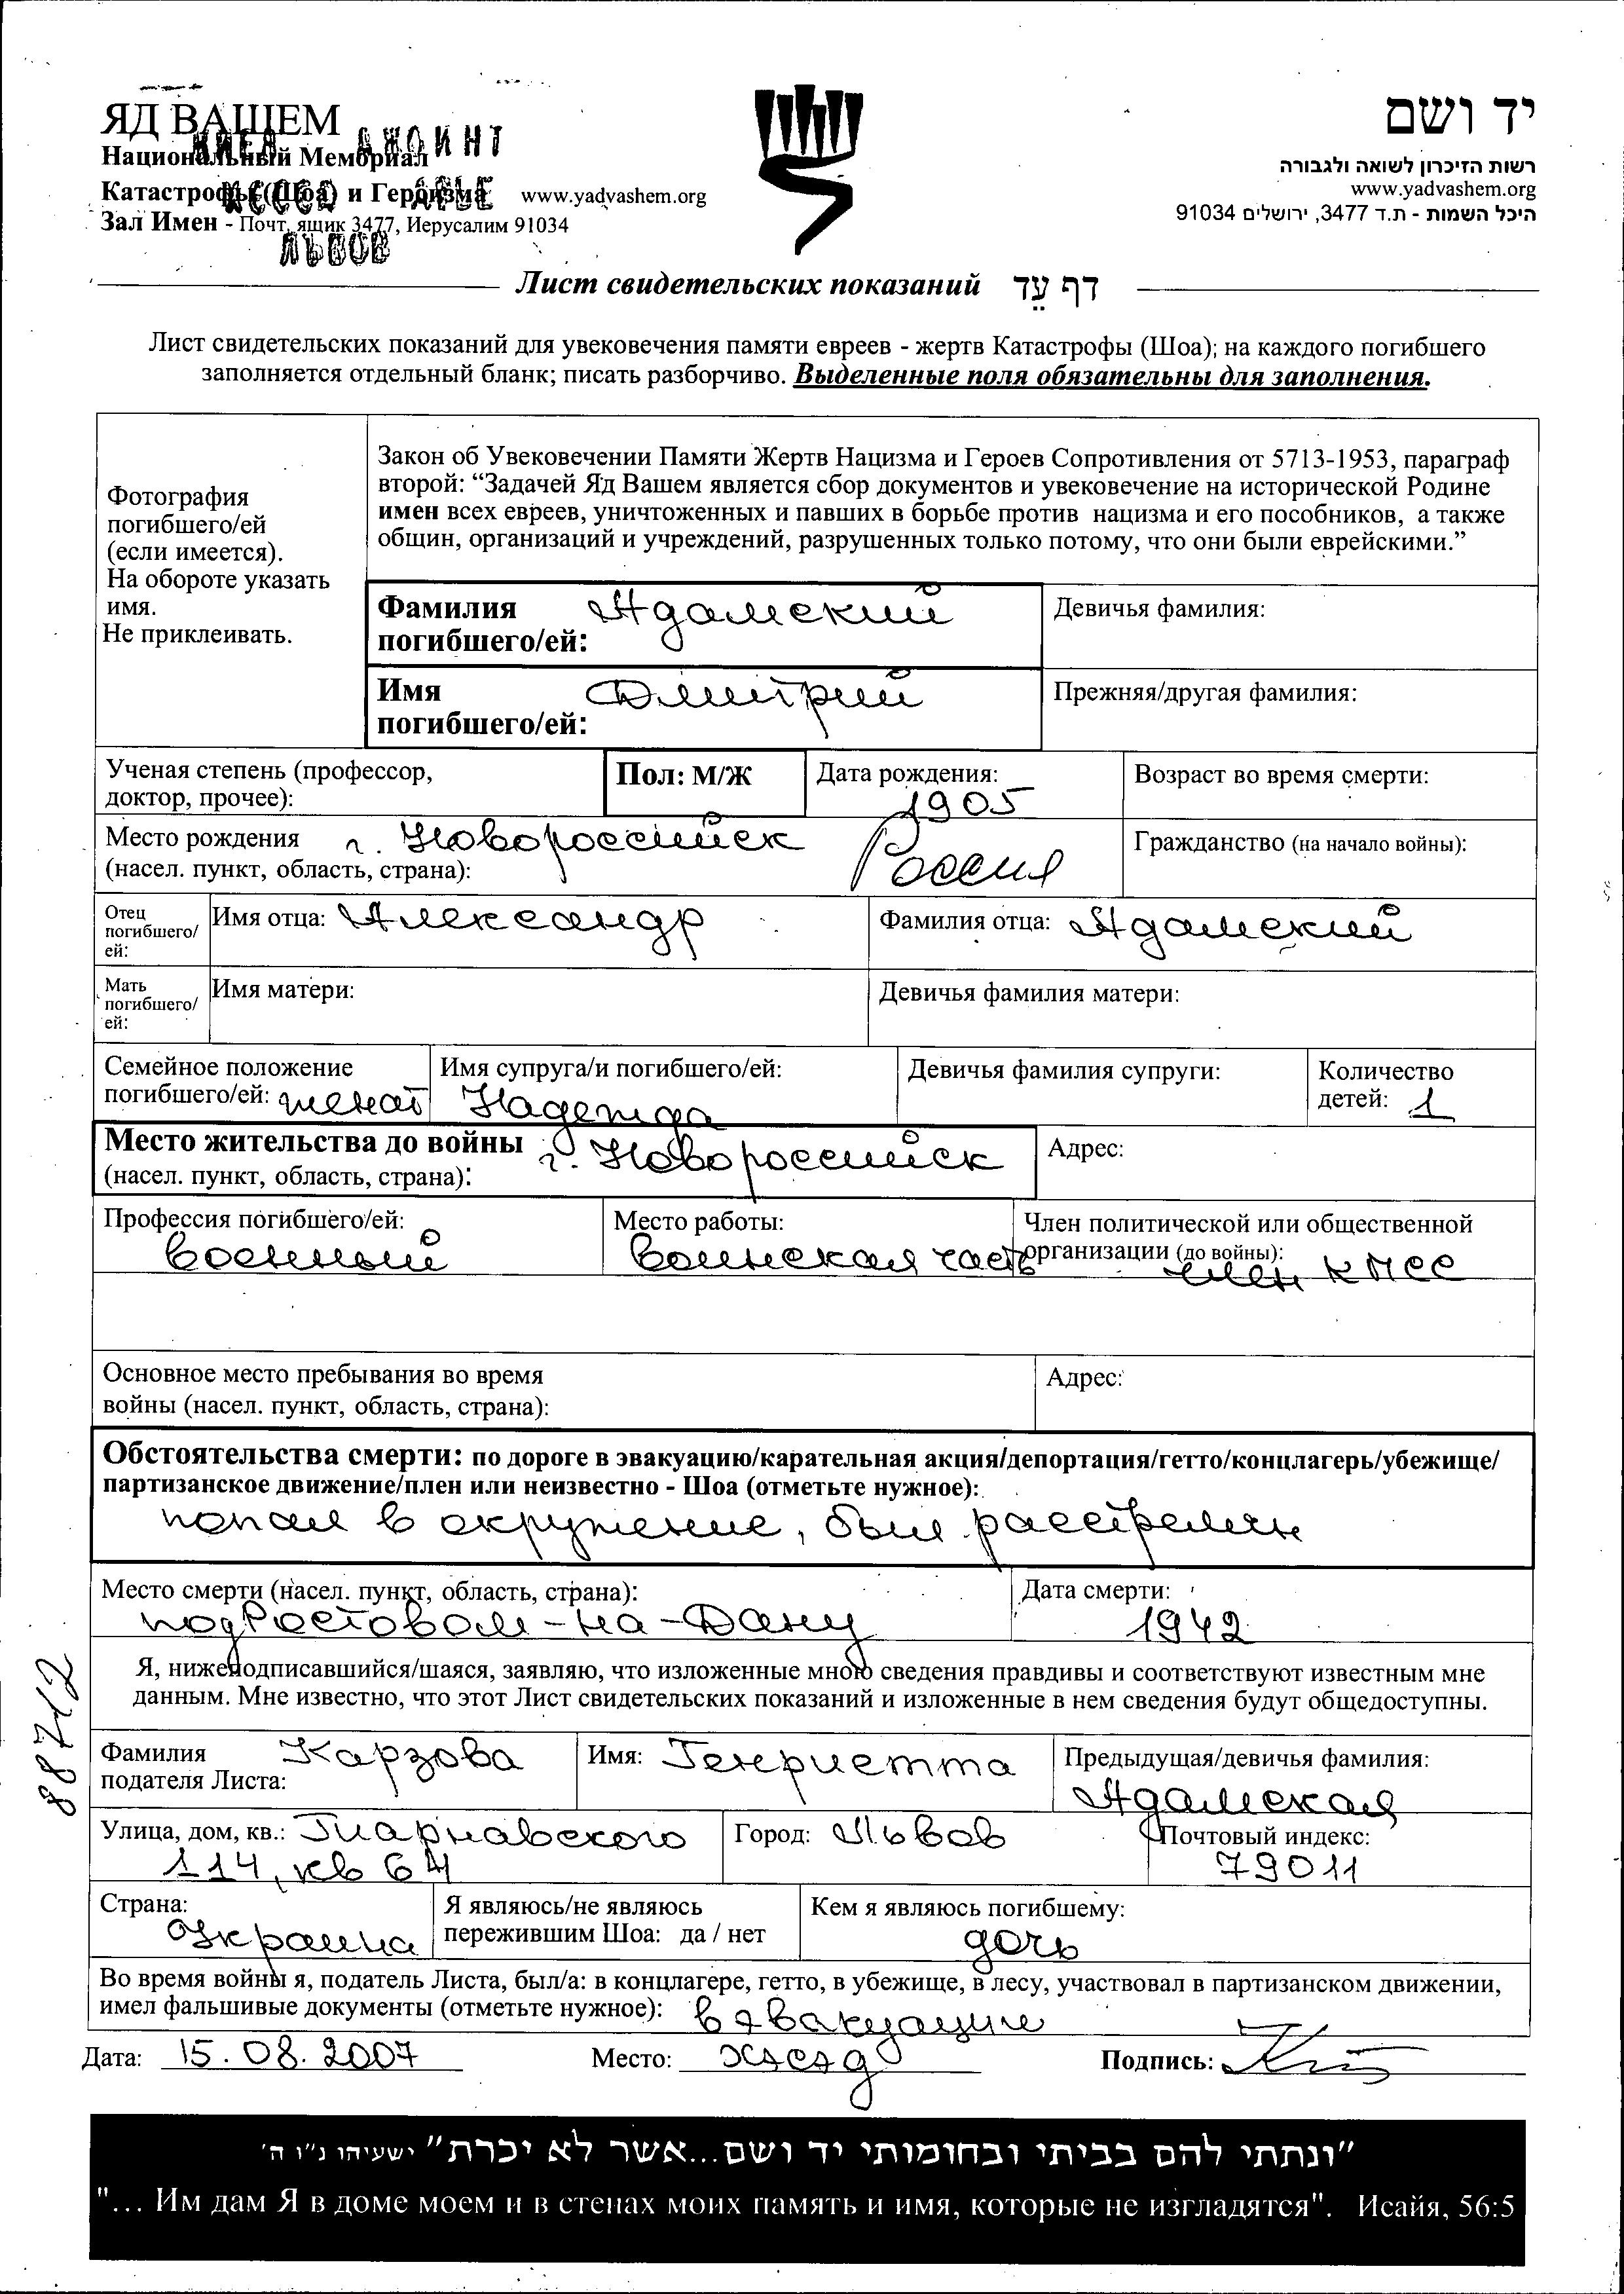 ЯД ВАШЕМ
Национальный Мемориал
Катастрофы (Шоа) и Героизма www.yadvashem.org
Зал Имен - Почт. ящик 3477, Иерусалим 91034
КИЕВ ДЖОИНТ
ХЕСЕД АРЬЕ
ЛЬВОВ
יד ושם
רשות הזיכרון לשואה ולגבורה
www.yadvashem.org
היכל השמות - ת.ד 3477, ירושלים 91034
Лист свидетельских показаний דף עֵד
Лист свидетельских показаний для увековечения памяти евреев - жертв Катастрофы (Шоа); на каждого погибшего
заполняется отдельный бланк; писать разборчиво. Выделенные поля обязательны для заполнения.
Фотография
погибшего/ей
(если имеется).
На обороте указать
имя.
Не приклеивать.
Закон об Увековечении Памяти Жертв Нацизма и Героев Сопротивления от 5713-1953, параграф
второй: “Задачей Яд Вашем является сбор документов и увековечение на исторической Родине
имен всех евреев, уничтоженных и павших в борьбе против нацизма и его пособников, а также
общин, организаций и учреждений, разрушенных только потому, что они были еврейскими.”
Фамилия
погибшего/ей: Адамский
Девичья фамилия:
Имя
погибшего/ей: Дмитрий
Прежняя/другая фамилия:
Ученая степень (профессор,
доктор, прочее):
Пол: М/Ж
Дата рождения:
1905
Возраст во время смерти:
Место рождения г. Новороссийск Россия
(насел. пункт, область, страна):
Гражданство (на начало войны):
Отец
погибшего/
ей:
Имя отца: Александр
Фамилия отца: Адамский
Мать
погибшего/
ей:
Имя матери:
Девичья фамилия матери:
Семейное положение
погибшего/ей: женат
Имя супруга/и погибшего/ей:
Надежда
Девичья фамилия супруги:
Количество
детей: 1
Место жительства до войны г. Новороссийск
(насел. пункт, область, страна):
Адрес:
Профессия погибшего/ей:
военный
Место работы:
воинская часть
Член политической или общественной
организации (до войны):
член КПСС
Основное место пребывания во время
войны (насел. пункт, область, страна):
Адрес:
Обстоятельства смерти: по дороге в эвакуацию/карательная акция/депортация/гетто/концлагерь/убежище/
партизанское движение/плен или неизвестно - Шоа (отметьте нужное):
попал в окружение, был расстрелян
Место смерти (насел. пункт, область, страна):
под Ростовом-на-Дану
Дата смерти:
1942
Я, нижеподписавшийся/шаяся, заявляю, что изложенные мною сведения правдивы и соответствуют известным мне
данным. Мне известно, что этот Лист свидетельских показаний и изложенные в нем сведения будут общедоступны.
88712
Фамилия
подателя Листа: Карзова
Имя: Генриетта
Предыдущая/девичья фамилия:
Адамская
Улица, дом, кв.: Тарнавского
114, кв 64
Город: Львов
Почтовый индекс:
79011
Страна:
Украина
Я являюсь/не являюсь
пережившим Шоа: да / нет
Кем я являюсь погибшему:
дочь
Во время войны я, податель Листа, был/а: в концлагере, гетто, в убежище, в лесу, участвовал в партизанском движении,
имел фальшивые документы (отметьте нужное): в эвакуации
Дата: 15.08.2007 Место: ХЕСЕД Подпись:
”ונתתי להם בביתי ובחומותי יד ושם...אשר לא יכרת” ישעיהו נ”ו ה'
"... Им дам Я в доме моем и в стенах моих память и имя, которые не изгладятся". Исайя, 56:5